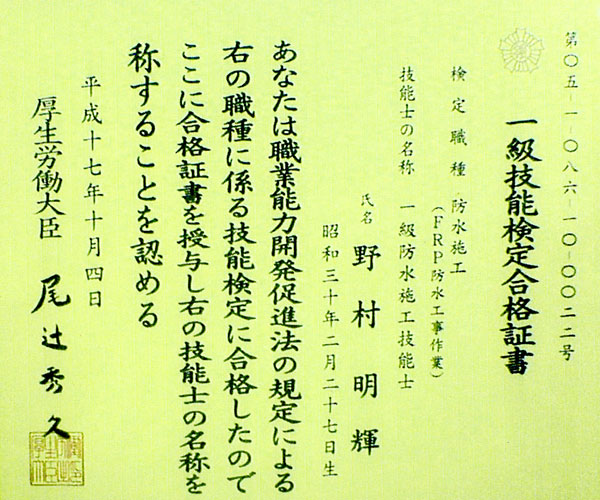 第〇五-一-〇八六-一〇-〇〇二二号
一級技能検定合格証書
検定職種 防水施工
(FRP防水工事作業)
技能士の名称 一級防水施工技能士
氏名 野村明輝
昭和三十年二月二十七日生
あなたは職業能力開発促進法の規定による
右の職種に係る技能検定に合格したので
ここに合格証書を授与し右の技能士の名称を
称することを認める
平成十七年十月四日
厚生労働大臣 尾辻秀久